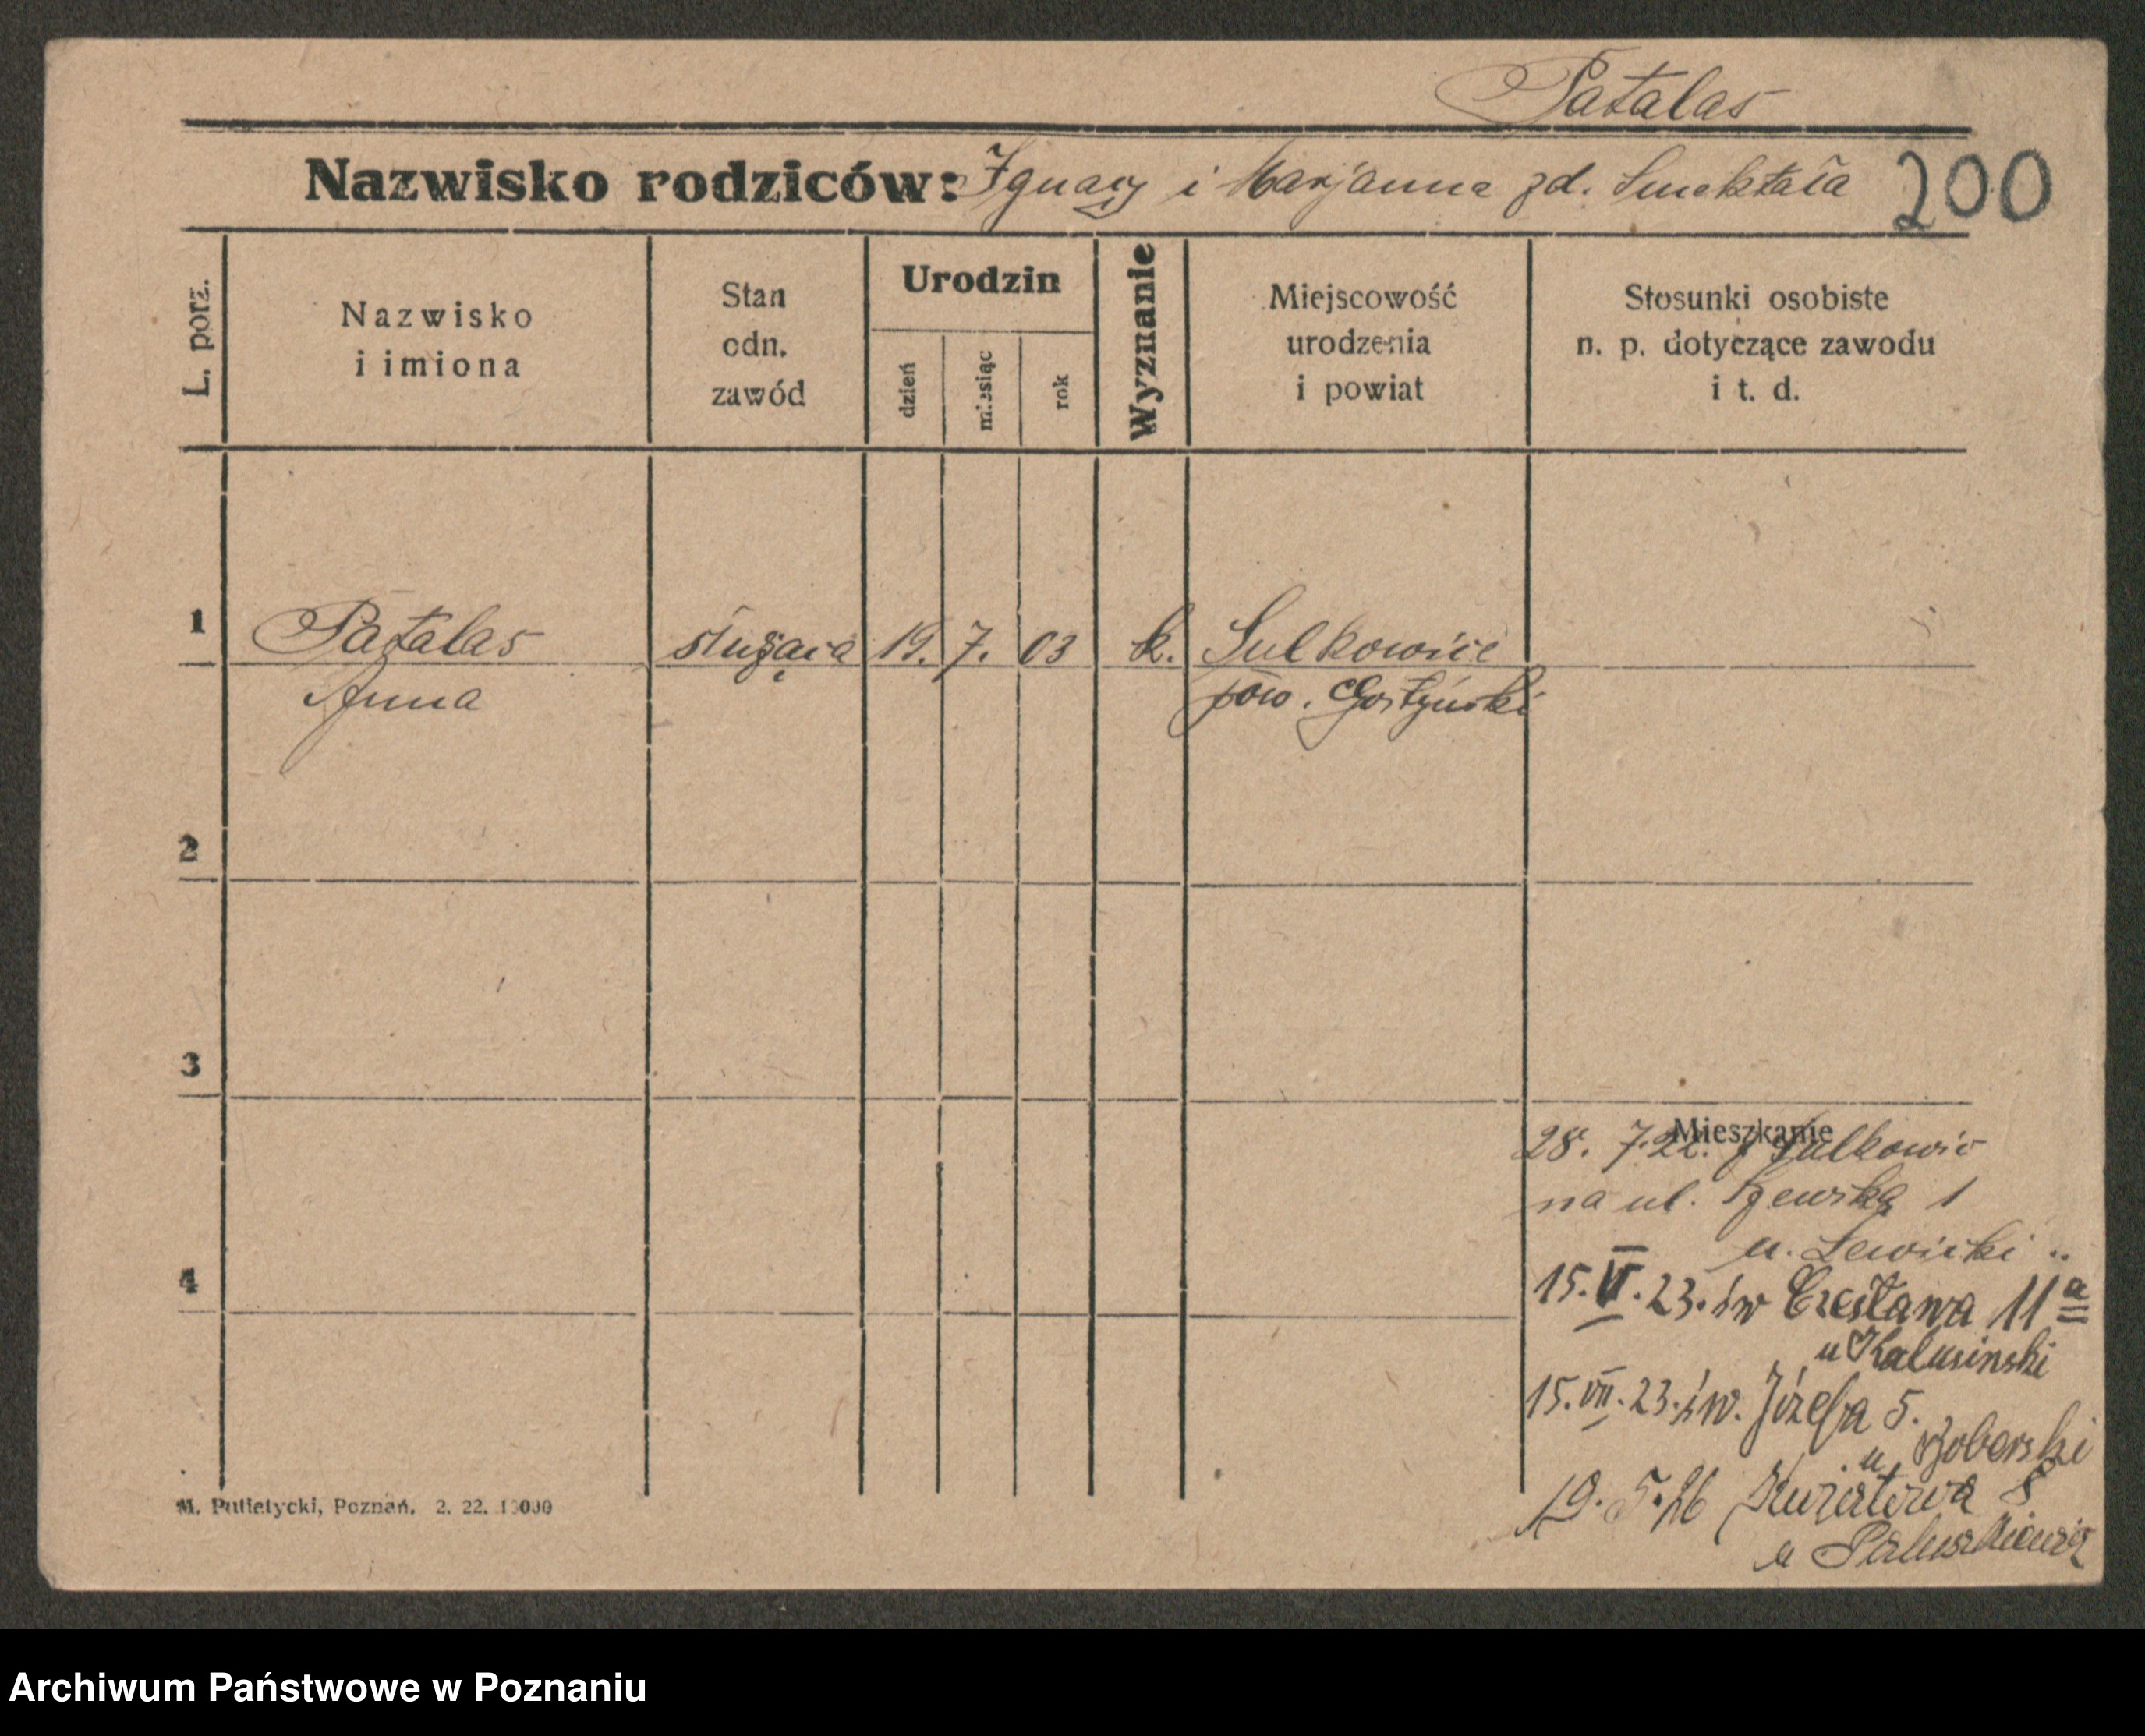 Patalas
Nazwisko rodziców: Ignacy i Marjanna zd. Smektała 200
L. porz.
Nazwisko
i imiona
Stan
odn.
zawód
Urodzin
dzień
miesiąc
rok
Wyznanie
Miejscowość
urodzenia
i powiat
Stosunki osobiste
n. p. dotyczące zawodu
i t. d.
1 Patalas służąca 19. 7. 03 k. Sulkowice
Anna pow. Gostyński
2
3
4
Mieszkanie
28. 7. 22. z Sulkowic
na ul. Szewska 1
u. Lewicki
15.VI.23. św Czesława 11a
u Kalusinski
15.VII.23. św. Józefa 5.
u Boberski
19. 5. 26 8
u
M. Putiatycki, Poznań. 2. 22. 10000
Archiwum Państwowe w Poznaniu